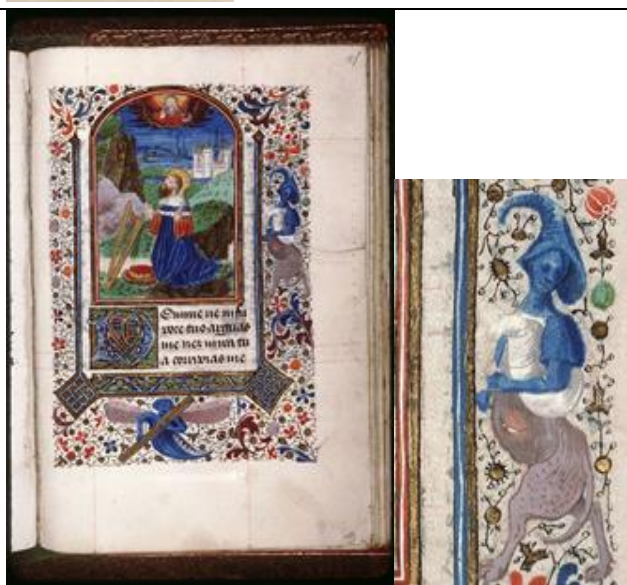 Domine ne in fu
rore tuo arguas
me neq in ira tu
a corripias me